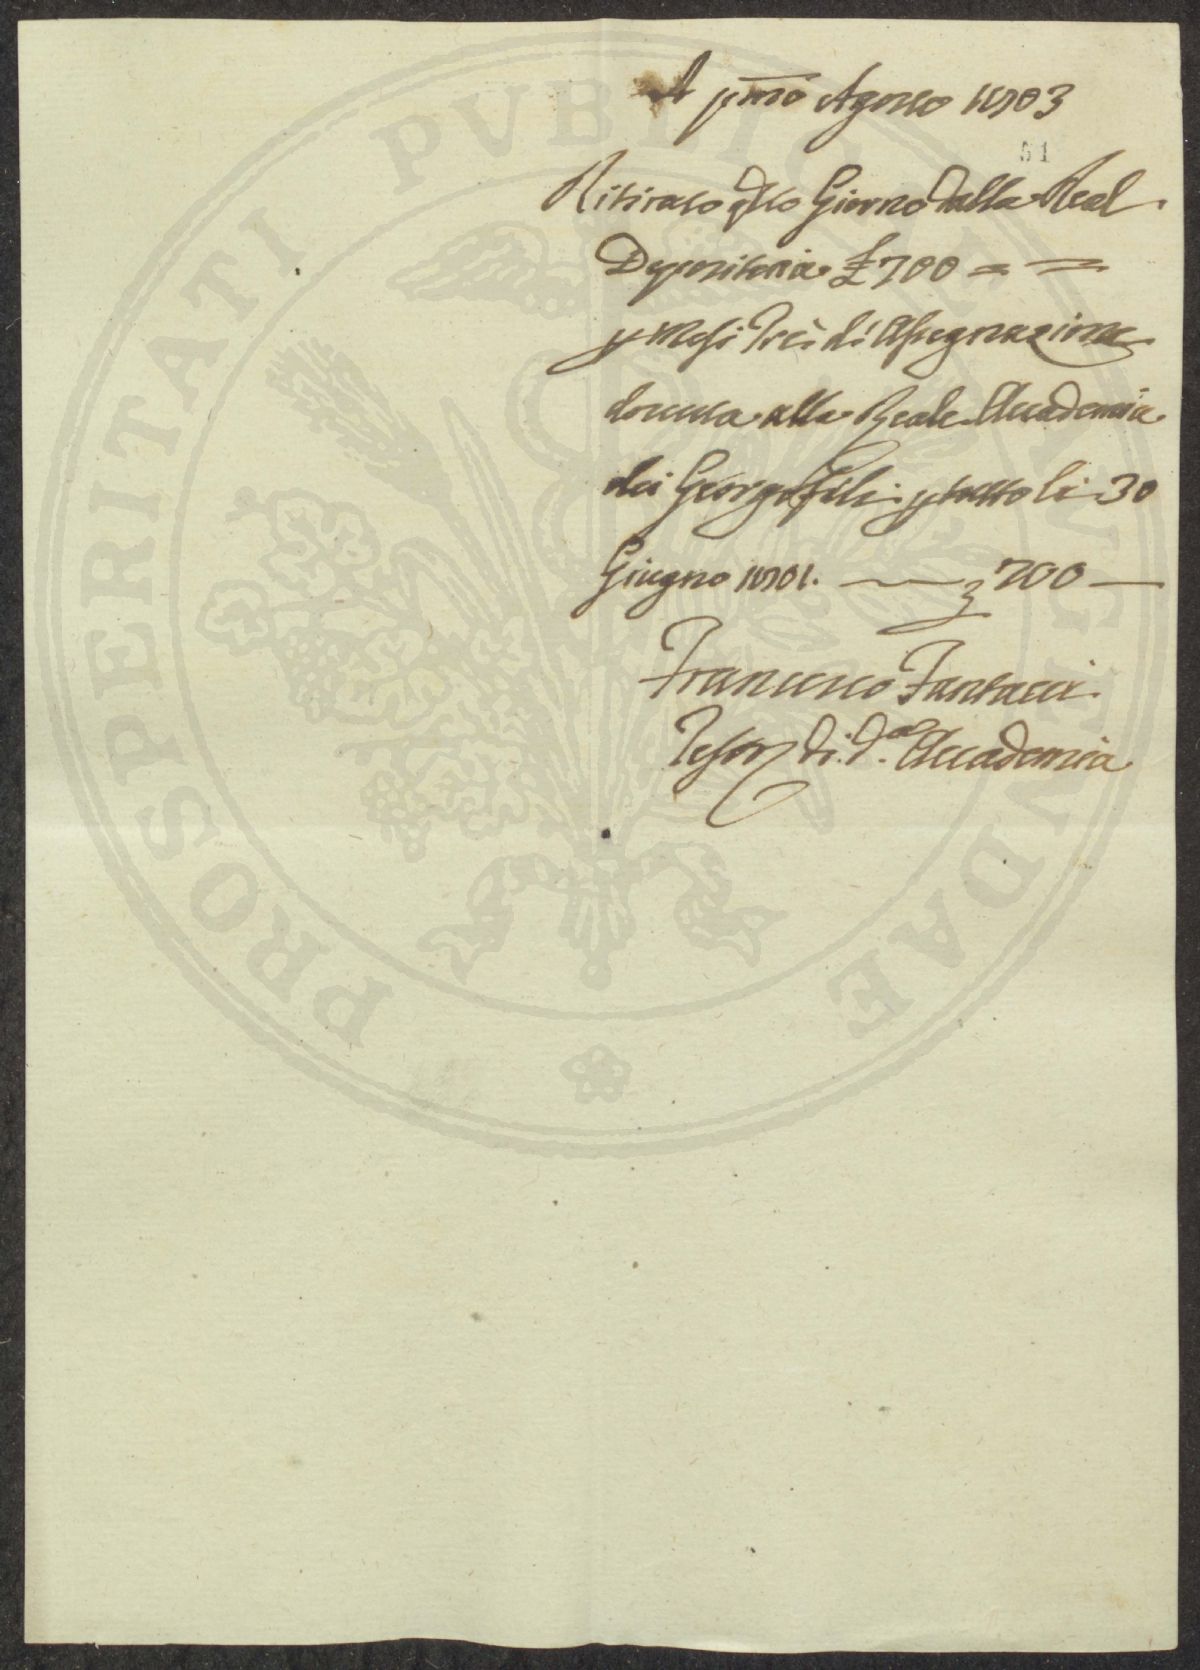 A pmo Agosto 1803
51
Ritirato qsto Giorno dalla Real
Depositeria £ 700 = =
p Mesi Tré di Assegnazione
dovuta alla Reale Accademia
dei Georgofili p tutto li 30
Giugno 1801. — £ 700 —
Francesco Fantacci
Tesor di da Accademia
PROSPERITATI PVBLICAE AVGENDAE